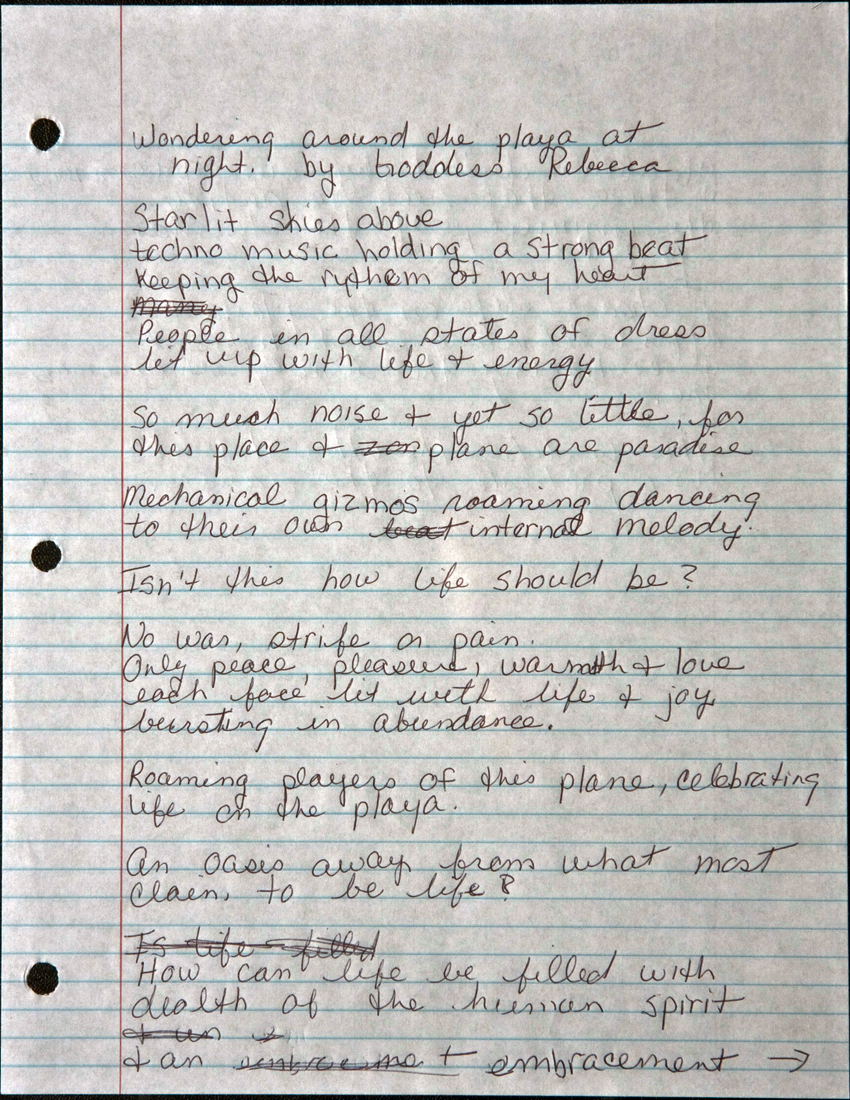 Wondering around the playa at
night. by Goddess Rebecca
Starlit skies above
techno music holding a strong beat
Keeping the rythem of my heart
Many
People in all states of dress
lit up with life & energy
So much noise & yet so little, for
this place & zon plane are paradise
Mechanical gizmos roaming dancing
to their own beat internal melody.
Isn't this how life should be?
No war, strife or pain.
Only peace, pleasure, warmth & love
each face lit with life & joy
bursting in abundance.
Roaming players of this plane, celebrating
life on the playa.
An oasis away from what most
claim to be life?
Is life filled
How can life be filled with
death of the human spirit
& un
& an embraceme t embracement →